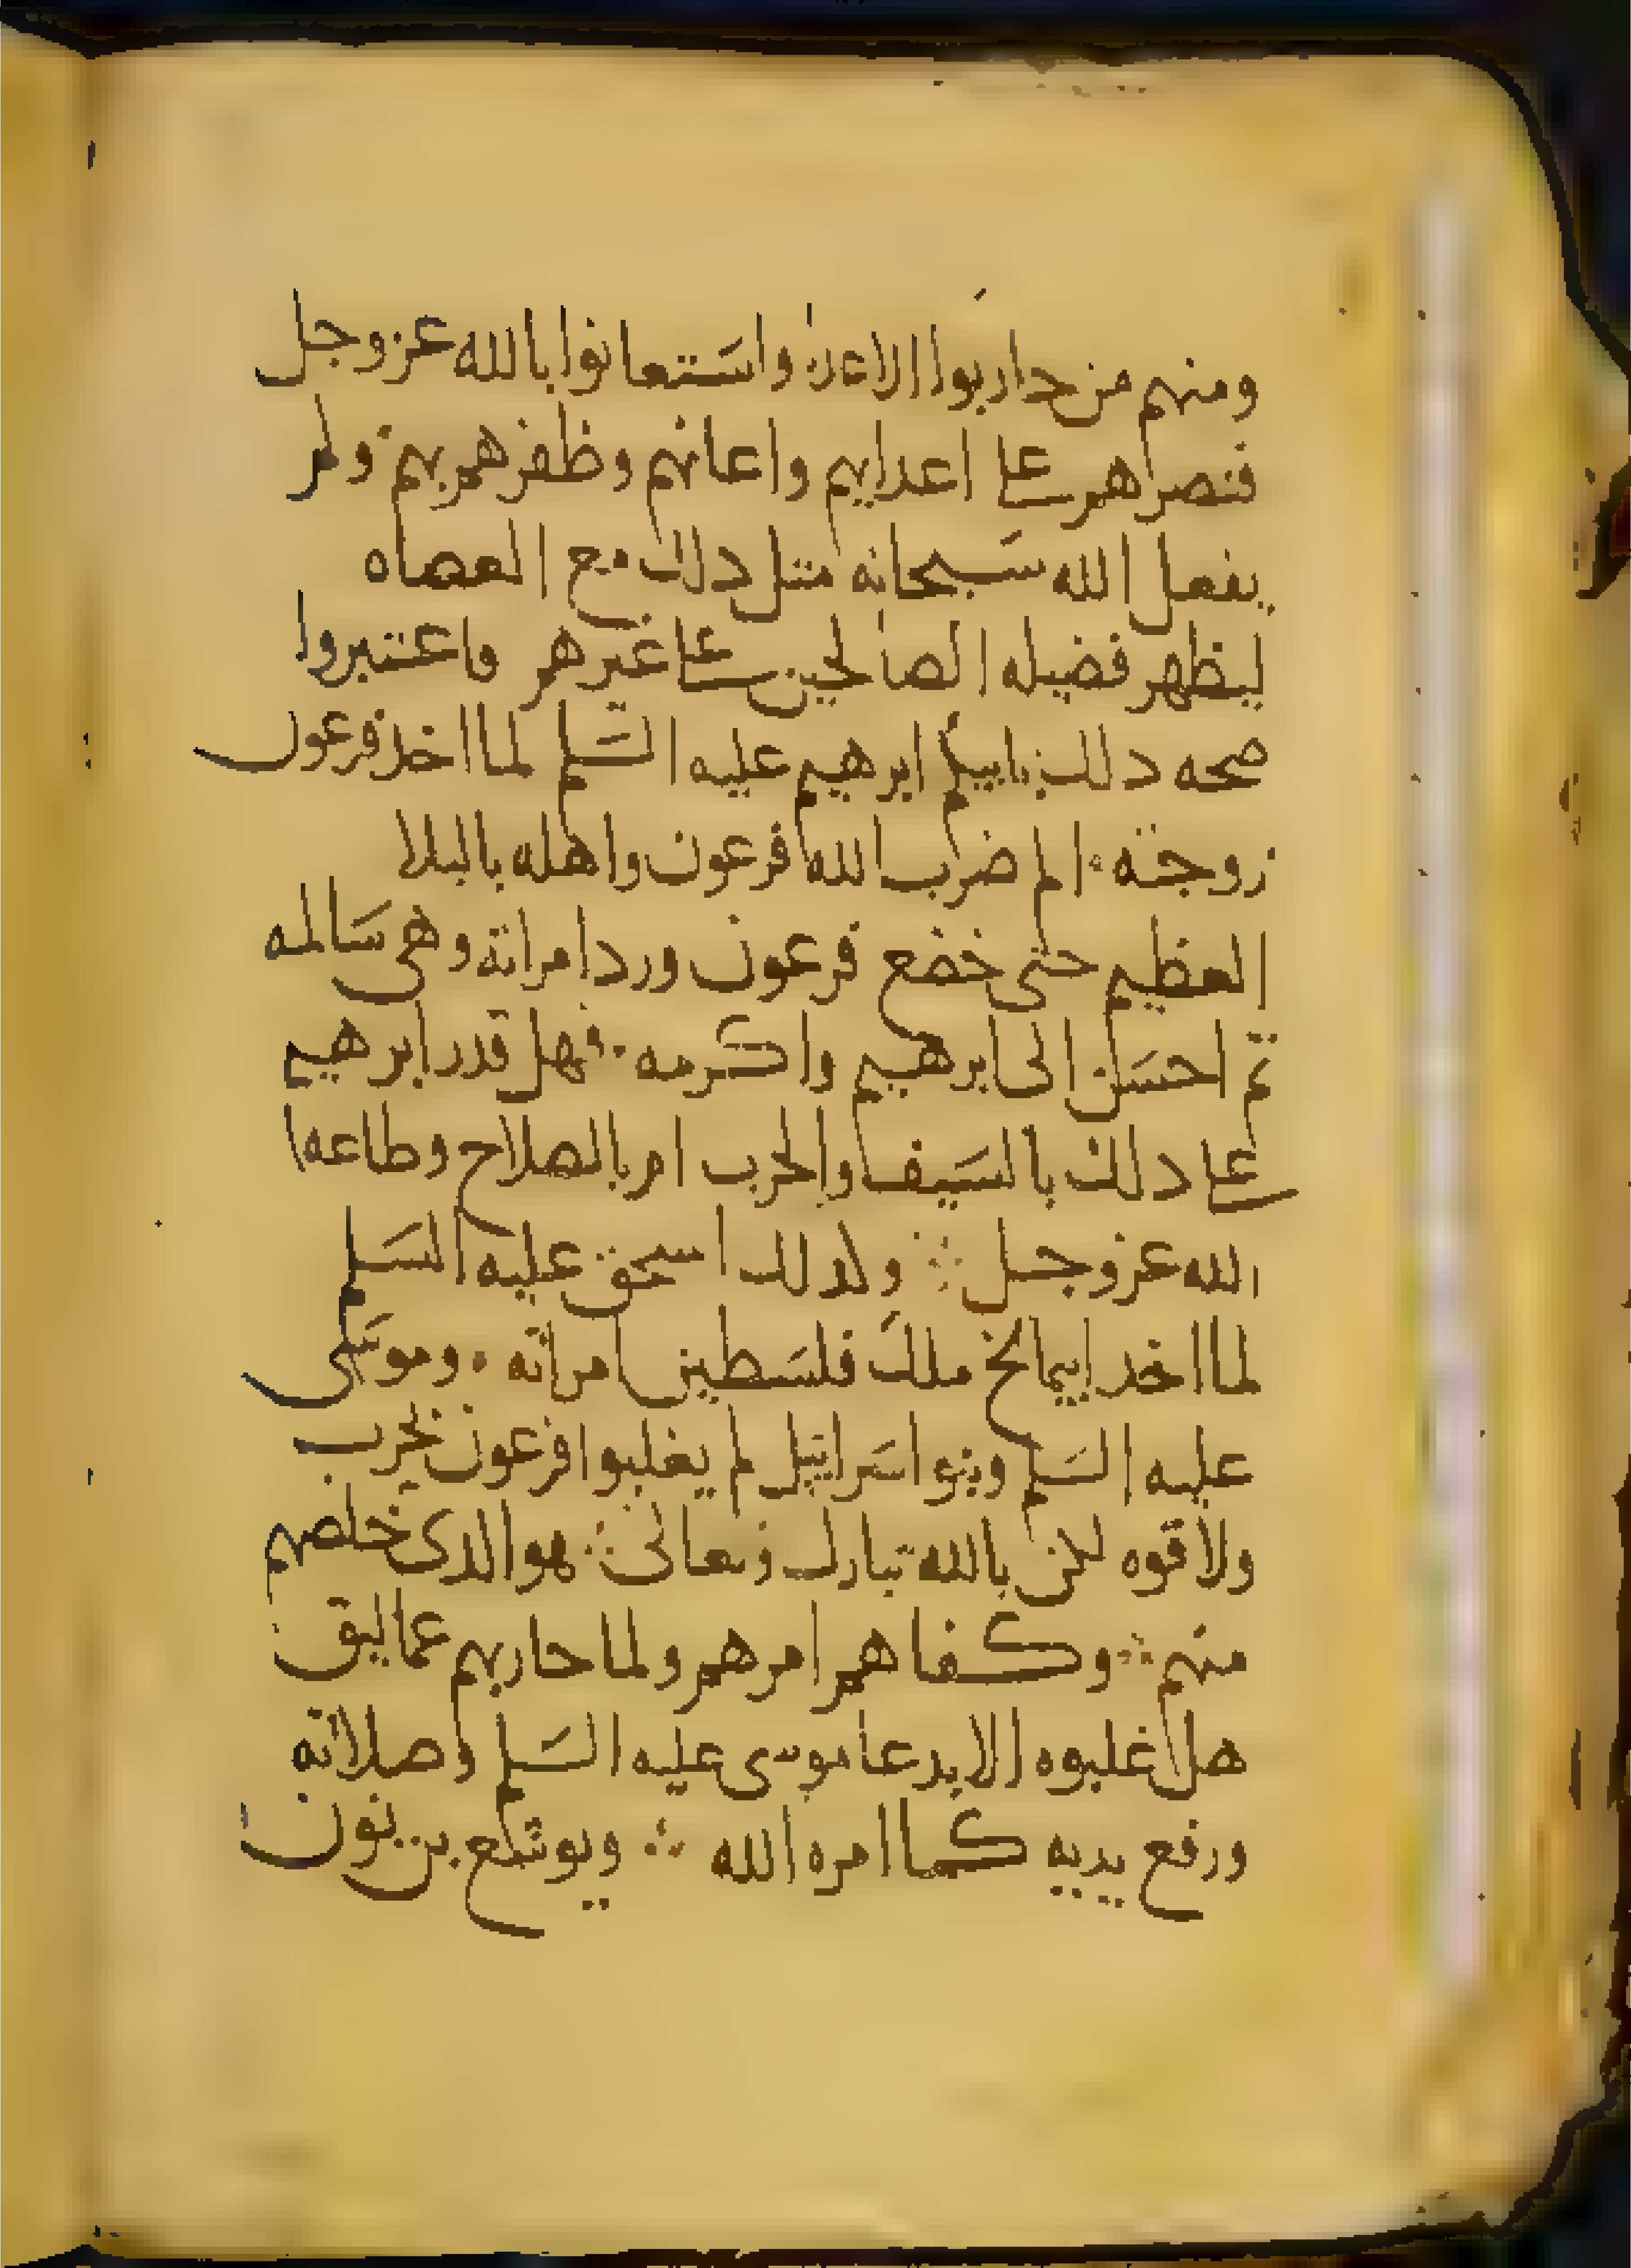 ومنهم من حاربوا الاعدا واستعانوا بالله عز وجل
فنصراهم على اعدايهم واعانهم وظفرهم بهم ولم
يفعل الله سبحانه متل دلك مع العصاه
ليظهر فضيله الصالحين على غيرهم واعتبروا
صحه دلك بابيكم ابرهيم عليه السلم لما اخد فرعون
زوجته الم ضرب الله فرعون واهله بالبلا
العظيم حتى خضع فرعون ورد امراته وهى سالمه
تم احسن الى ابرهيم واكرمه فهل قدر ابرهيم
على دلك بالسيف والحرب ام بالصلاح وطاعه ا
لله عز وجل ولدلك اسحق عليه السلم
لما اخد ابيمالخ ملك فلسطين امراته وموسى
عليه السلم وبنو اسراييل لم يغلبوا فرعون بحرب
ولا قوه لكن بالله تبارك وتعالى هو الدى خلصهم
منهم وكفاهم امرهم ولما حاربهم عماليق
هل غلبوه الا بدعا موسى عليه السلم وصلاته
ورفع يديه كما امره الله ويوشع بن نون